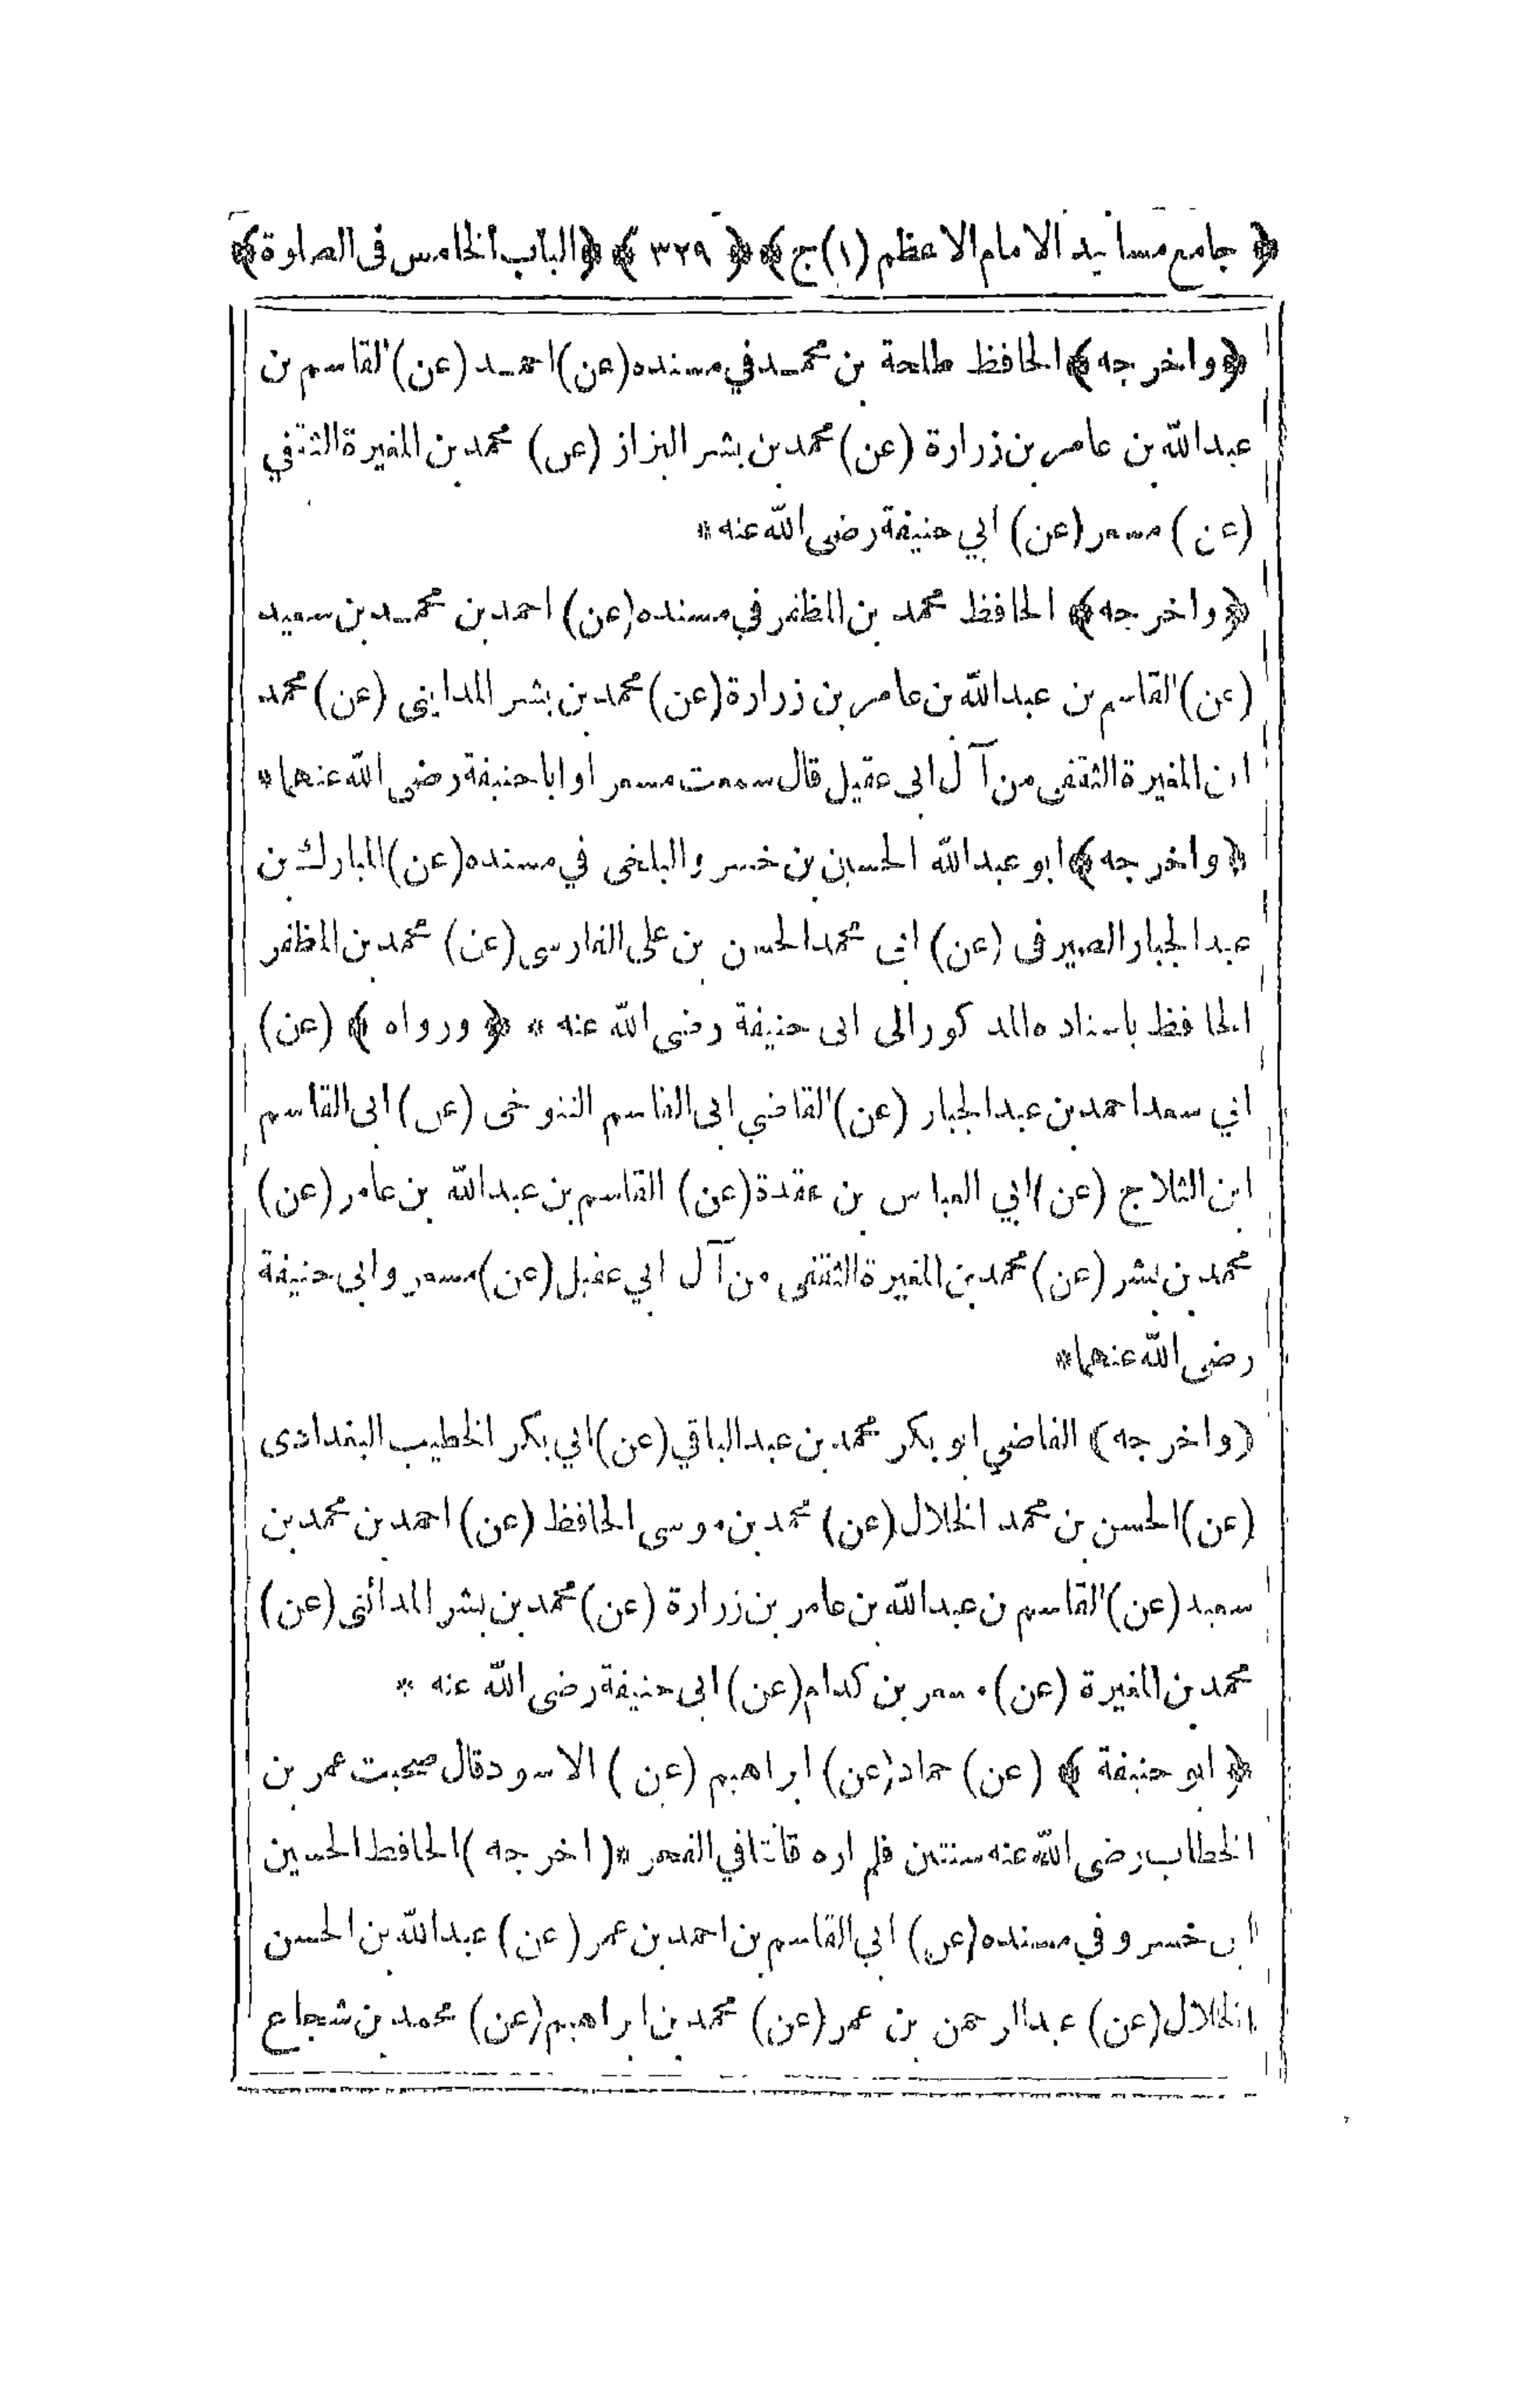 ﴿ جامع مسانيد الامام الاعظم (١) ج ﴾ ﴿ ٣٢٩ ﴾ ﴿ الباب الخامس فى الصلوة ﴾
﴿ واخرجه ﴾ الحافظ طلحة بن محمد في مسنده (عن) احمد (عن) القاسم بن
عبدالله بن عامر بن زرارة (عن) محمد بن بشر البزاز (عن) محمد بن المغيرة الثقفي
(عن) مسعر (عن) ابي حنيفة رضى الله عنه *
﴿ واخرجه ﴾ الحافظ محمد بن المظفر في مسنده (عن) احمد بن محمد بن سعيد
(عن) القاسم بن عبدالله بن عامر بن زرارة (عن) محمد بن بشر المدايني (عن) محمد
ابن المغيرة الثقفى من آل ابى عقيل قال سمعت مسعر او ابا حنيفة رضى الله عنهما *
﴿ واخرجه ﴾ ابو عبدالله الحسين بن خسرو البلخى في مسنده (عن) المبارك بن
عبدالجبار الصيرفى (عن) ابى محمد الحسن بن على الفارسى (عن) محمد بن المظفر
الحافظ باسناده المذكور الى ابى حنيفة رضى الله عنه * ﴿ ورواه ﴾ (عن)
ابي سعد احمد بن عبدالجبار (عن) القاضي ابى القاسم التنوخى (عن) ابى القاسم
ابن الثلاج (عن) ابي العباس بن عقدة (عن) القاسم بن عبدالله بن عامر (عن)
محمد بن بشر (عن) محمد بن المغيرة الثقفى من آل ابي عقيل (عن) مسعر وابى حنيفة
رضى الله عنهما *
(واخرجه) القاضي ابو بكر محمد بن عبدالباقي (عن) ابي بكر الخطيب البغدادى
(عن) الحسن بن محمد الخلال (عن) محمد بن موسى الحافظ (عن) احمد بن محمد بن
سعيد (عن) القاسم بن عبدالله بن عامر بن زرارة (عن) محمد بن بشر المدائنى (عن)
محمد بن المغيرة (عن) مسعر بن كدام (عن) ابى حنيفة رضى الله عنه *
﴿ ابو حنيفة ﴾ (عن) حماد (عن) ابراهيم (عن) الاسود قال صحبت عمر بن
الخطاب رضى الله عنه سنتين فلم اره قانتا في الفجر * (اخرجه) الحافظ الحسين
ابن خسرو في مسنده (عن) ابي القاسم بن احمد بن عمر (عن) عبدالله بن الحسن
الخلال (عن) عبدالرحمن بن عمر (عن) محمد بن ابراهيم (عن) محمد بن شجاع